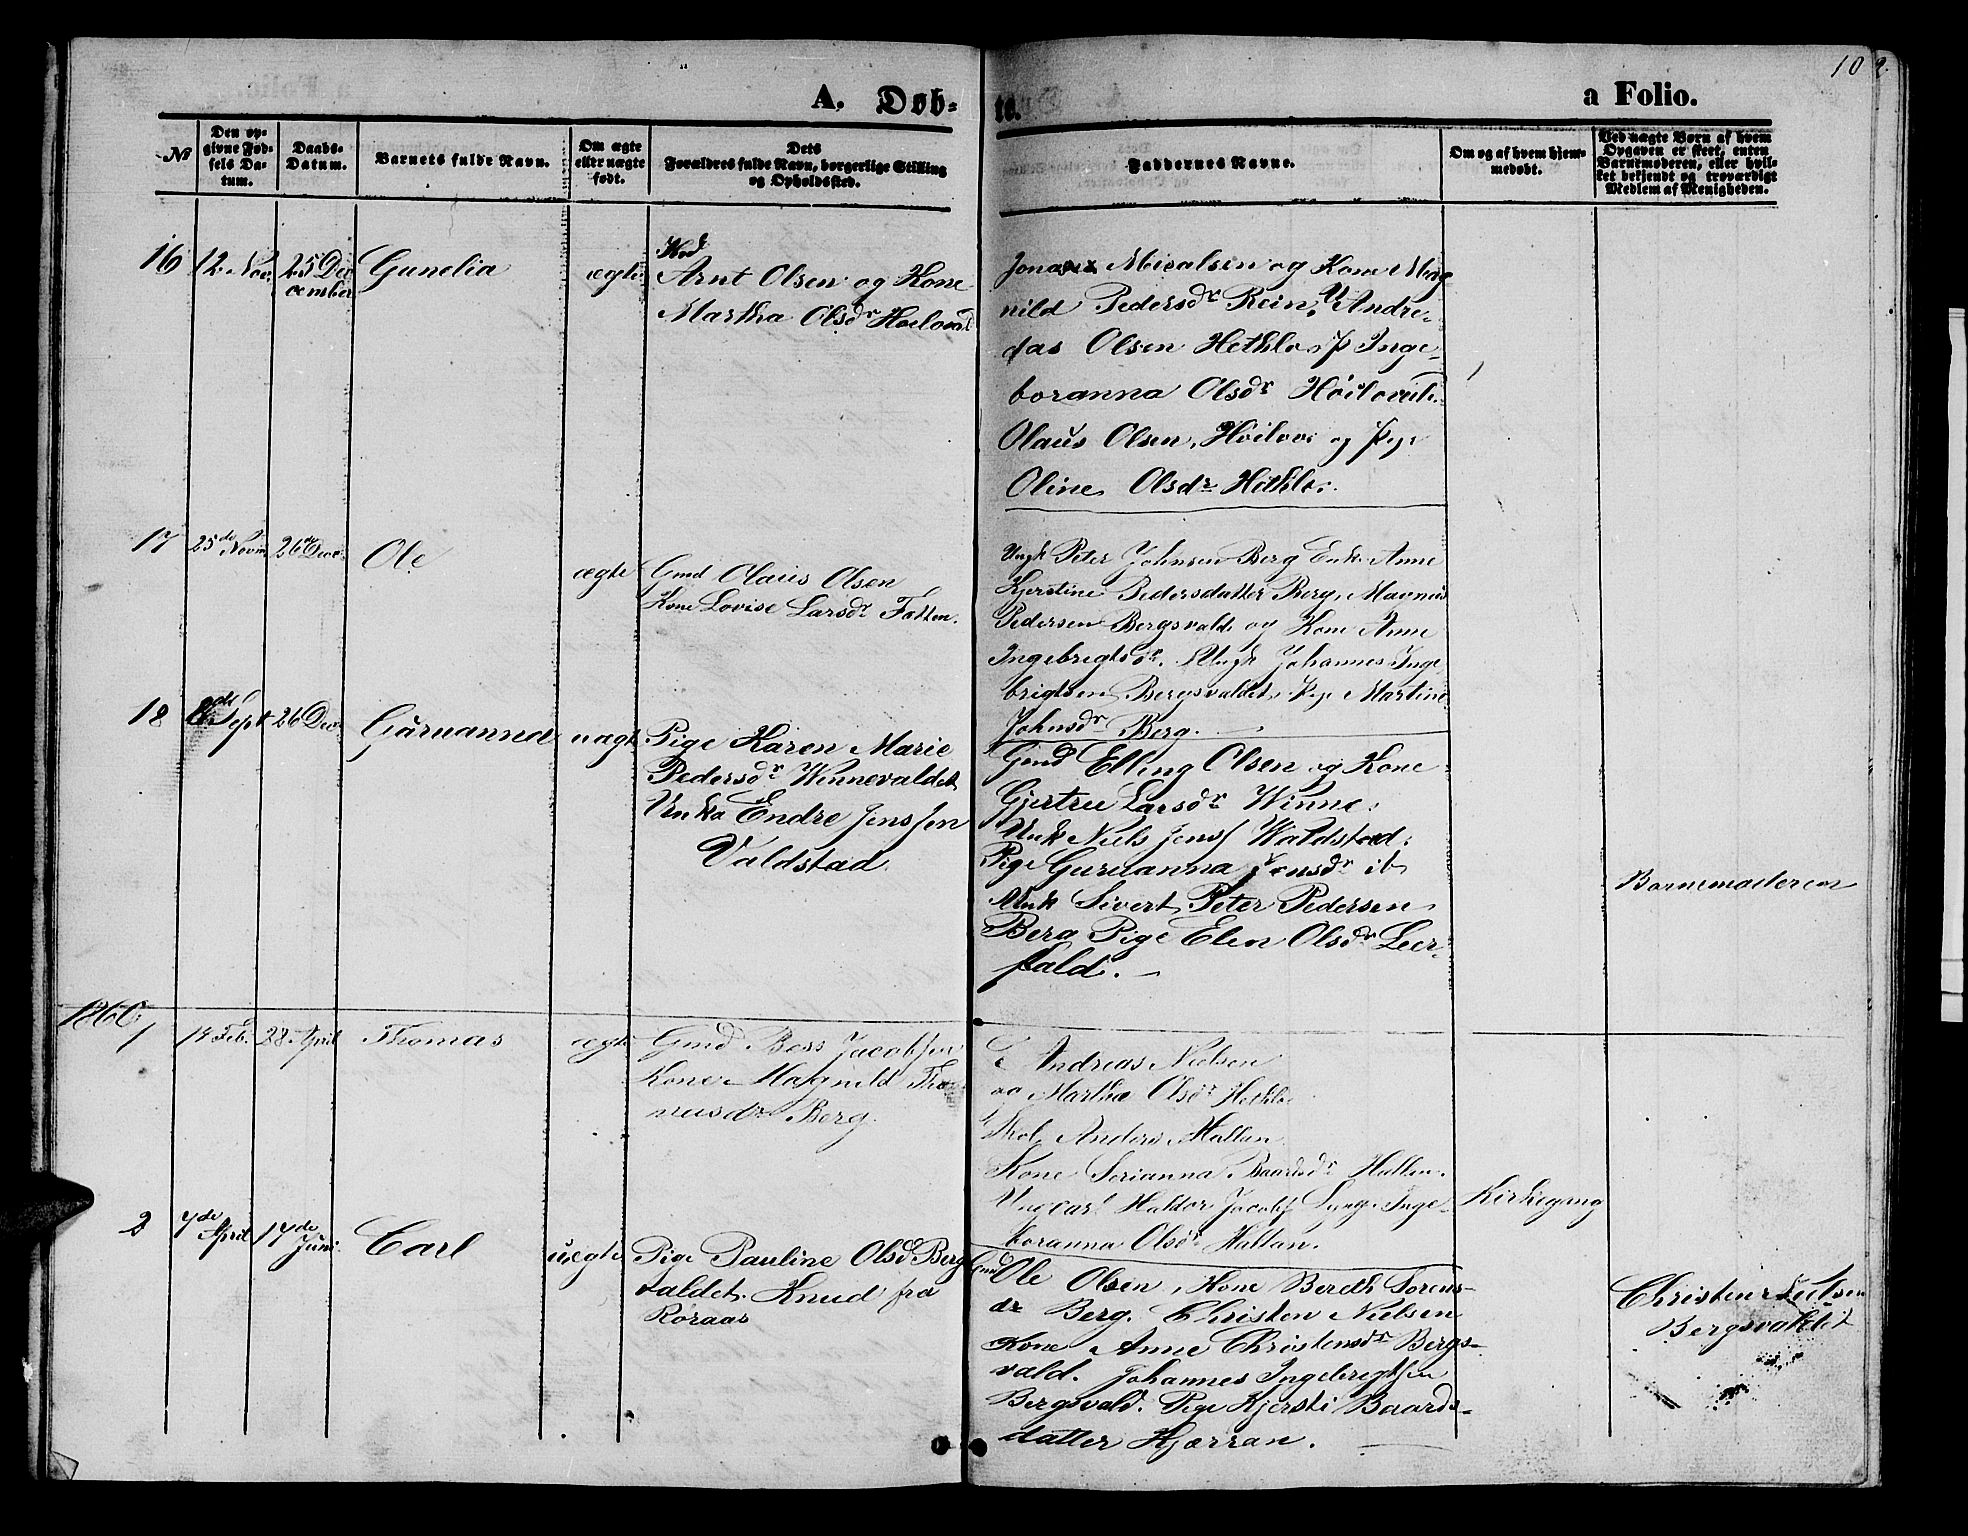 102.
A. Døb-
te.
a Folio.
№
Den op-
givne Fød-
sels Da-
tum.
Daabs-
Datum.
Barnets fulde Navn.
Om ægte
eller uægte
født.
Dets
Forældres fulde Navn, borgerlige Stilling
og Opholdssted.
Faddernes Navne.
Om og af hvem hjem-
medøbt.
Ved uægte Børn af hvem
Opgaven er skeet, enten
Barnemoderen, eller hvil-
ket bekjendt og troværdigt
Medlem af Menigheden.
16
12. Nov.
25 De-
cember
Gunelia
ægte
Arnt Olsen og Kone
Martha Olsdr
Micalsen og Kone Mag
nild Pedersdr Rein, Andre-
as Olsen Hethlo P Inge-
boranna Olsdr
Olaus Olsen, Høilovi og Pige
Oline Olsdr
17
25de Novm
26de Dece.
Ole
ægte
Gmd Olaus Olsen
Kone Lovise Larsdr
Ungk Peter Johnsen Berg Enke Anne
Kjerstine Pedersdatter Berg, Magnus
Pedersen Bergsvald og Kone Anne
Ingebregtsdr. Ungk Johannes Inge
brigtsen Bergsvaldet, Pige Martine
Johnsdr Berg.
18
Sept
26 Dec.
Guruanna
uægte
Pige Karen Marie
Pedersdr Winnevaldet
Unka Endre Jenssen
Valdstad.
Gmd Elling Olsen og Kone
Gjertru Larsdr Winne.
Unk Niels Jenss Waldstad;
Pige Guruanna Jensdr ib
Unk Sivert Peter Pedersen
Berg Pige Elen Olsdr Leer-
fald.
Barnemoderen
1860
1
14 Feb.
28 April
Thomas
ægte
Gmd Bess Jacobsen
Kone Magnild
Berg.
Andreas Nielsen
og Martha Olsdr Hethlo
Anders Hallan
Kone Serianna Baardsdr Hallan.
Ungkarl Haldor Jacobs Inge-
boranna Olsdr Hallan.
Kirkegang
2
7de April
17de Juni.
Carl
uægte
Pige Pauline Olsd Berg
valdet. Knud fra
Røraas
Gmd Ole Olsen, Kone Bereth Sorens-
dr Berg. Christen Nielsen
Kone Anne Christensdr Bergs-
vald. Johannes Ingebregtsen
Bergsvald. Pige Kjersti Baards-
datter Kjærran.
Christen Nielsen
Bergsvaldet